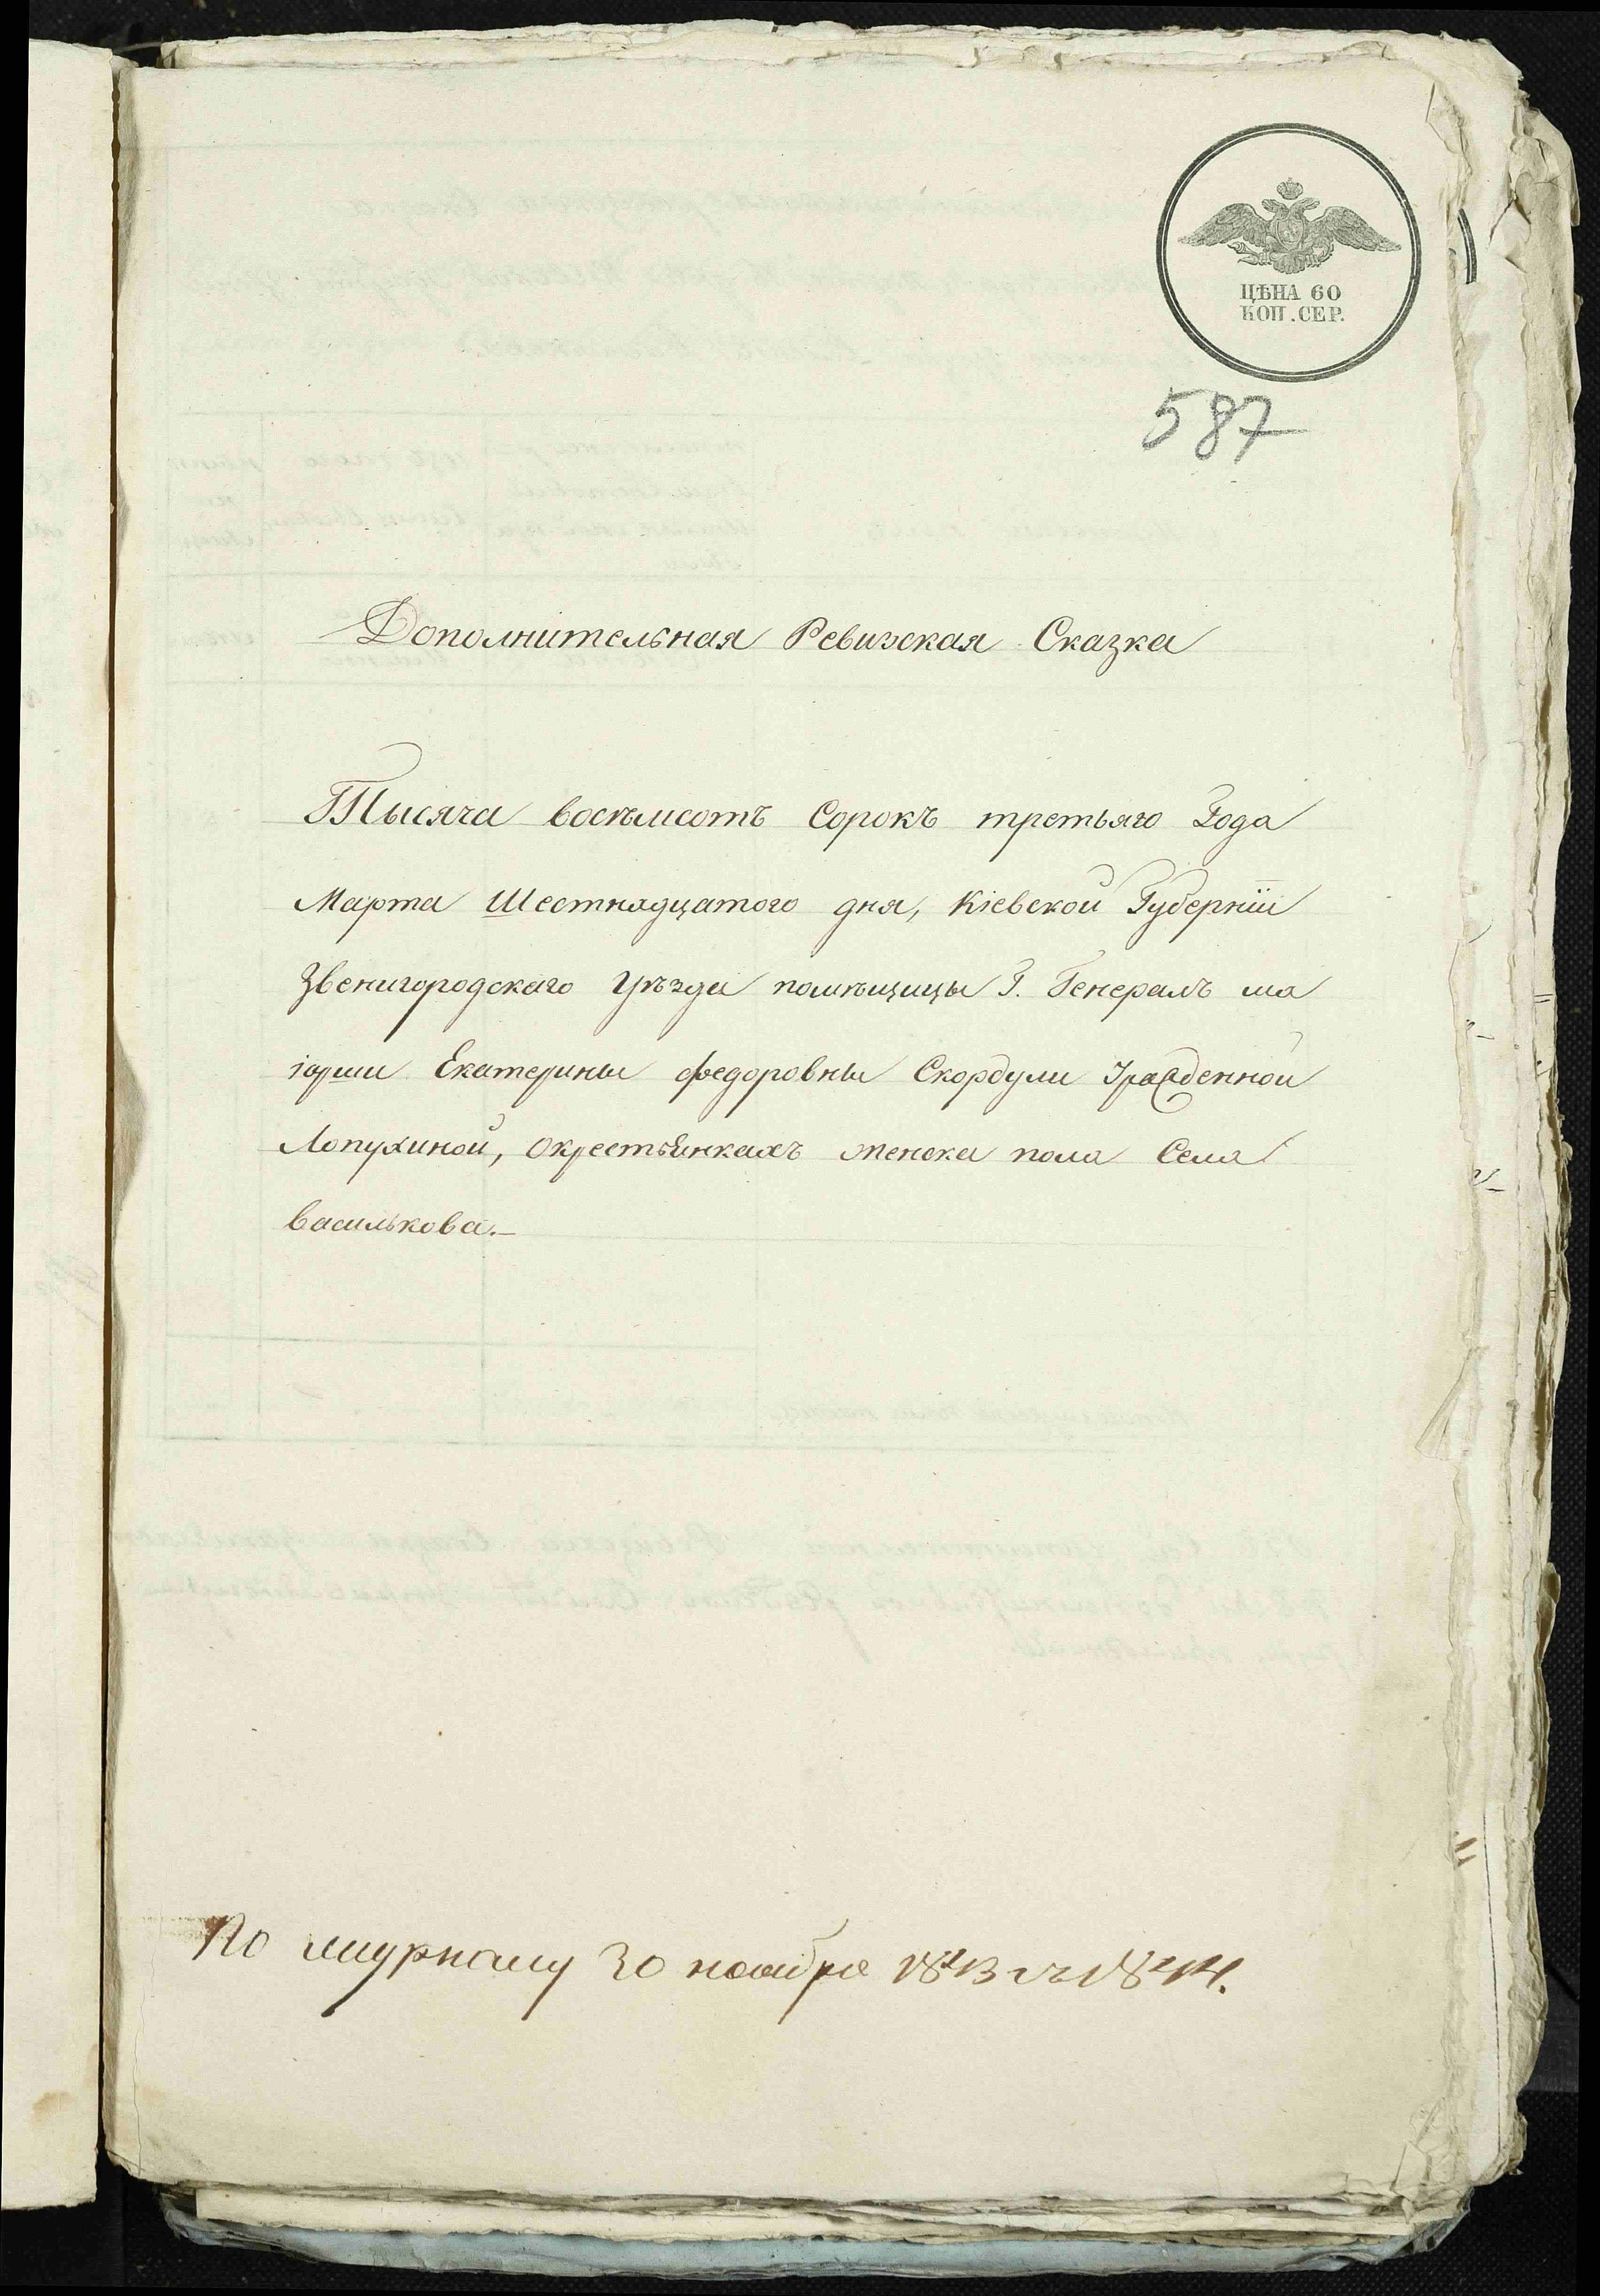 ЦѢНА 60
КОП. СЕР.
587
Дополнительная Ревизская Сказка
Тысяча восемсотъ Сорокъ третьяго Года
Марта Шестнадцатого дня, Кіевской Губерніи
Звенигородскаго Уѣзда помѣщицы Г. Генералъ ма
іорши Екатерины Федоровны Скордули Урожденной
Лопухиной, О крестьянкахъ женска пола Села
василькова.
По 30 ноября 1843